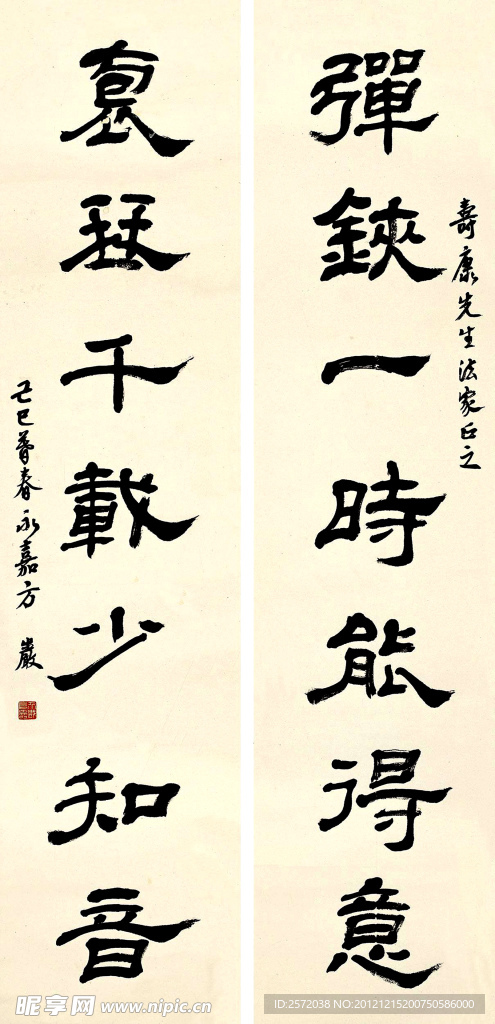 壽康先生法家正之
彈鋏一時能得意
琹千載少知音
己巳暮春永嘉方 嚴
昵享网 www.nipic.cn
ID:2572038 NO:20121215200750586000